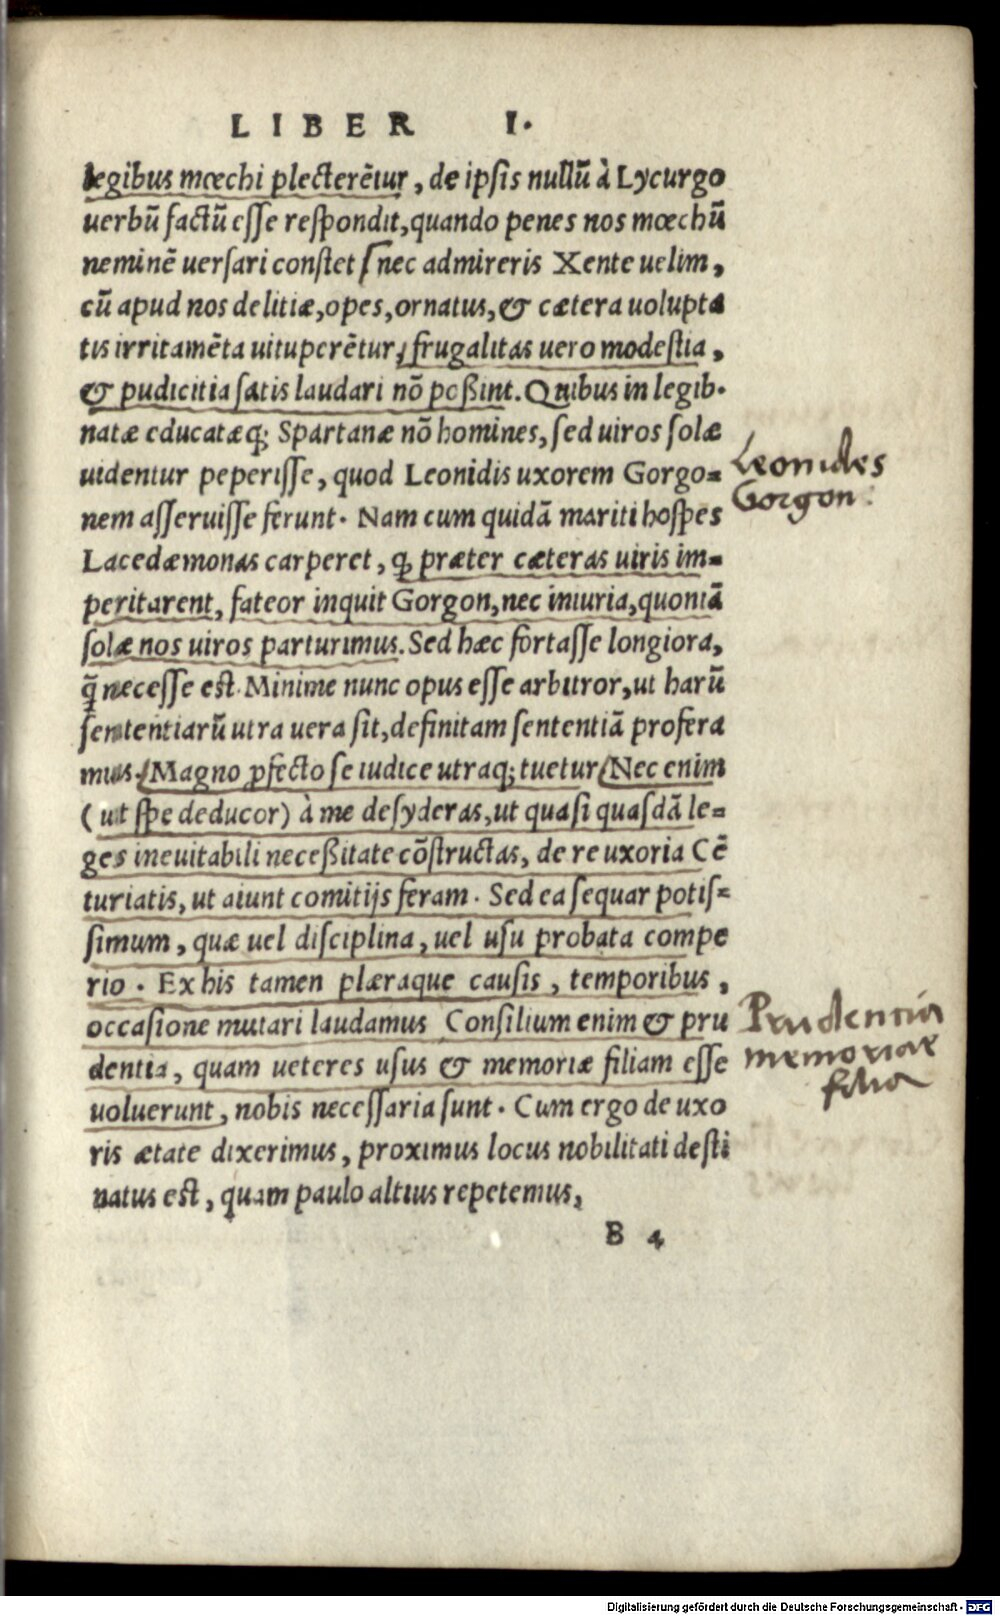 LIBER I.
legibus mœchi plecterẽtur, de ipsis nullũ à Lycurgo
uerbũ factũ esse respondit, quando penes nos mœchũ
neminẽ uersari constet nec admireris Xente uelim,
cũ apud nos delitiæ, opes, ornatus, & cætera uolupta
tis irritamẽta uituperẽtur, frugalitas uero modestia,
& pudicitia satis laudari nõ poßint. Quibus in legib.
natæ educatæq; Spartanæ nõ homines, sed uiros solæ
uidentur peperisse, quod Leonidis uxorem Gorgo=
nem asseruisse ferunt. Nam cum quidã mariti hospes
Lacedæmonas carperet, ꝙ præter cæteras uiris im=
peritarent, fateor inquit Gorgon, nec iniuria, quoniã
solæ nos uiros parturimus. Sed hæc fortasse longiora,
q̃ necesse est. Minime nunc opus esse arbitror, ut harũ
sententiarũ utra uera sit, definitam sententiã profera
mus. Magno ꝓfecto se iudice utraq; tuetur Nec enim
(ut spe deducor) à me desyderas, ut quasi quasdã le=
ges ineuitabili neceßitate cõstructas, de re uxoria Cẽ
turiatis, ut aiunt comitijs feram. Sed ea sequar potis=
simum, quæ uel disciplina, uel usu probata compe
rio. Ex his tamen plæraque causis, temporibus,
occasione mutari laudamus Consilium enim & pru
dentia, quam ueteres usus & memoriæ filiam esse
uoluerunt, nobis necessaria sunt. Cum ergo de uxo
ris ætate dixerimus, proximus locus nobilitati desti
natus est, quam paulo altius repetemus,
B 4
Leonides
Gorgon
Prudentia
memoriae
filia
Digitalisierung gefördert durch die Deutsche Forschungsgemeinschaft - DFG